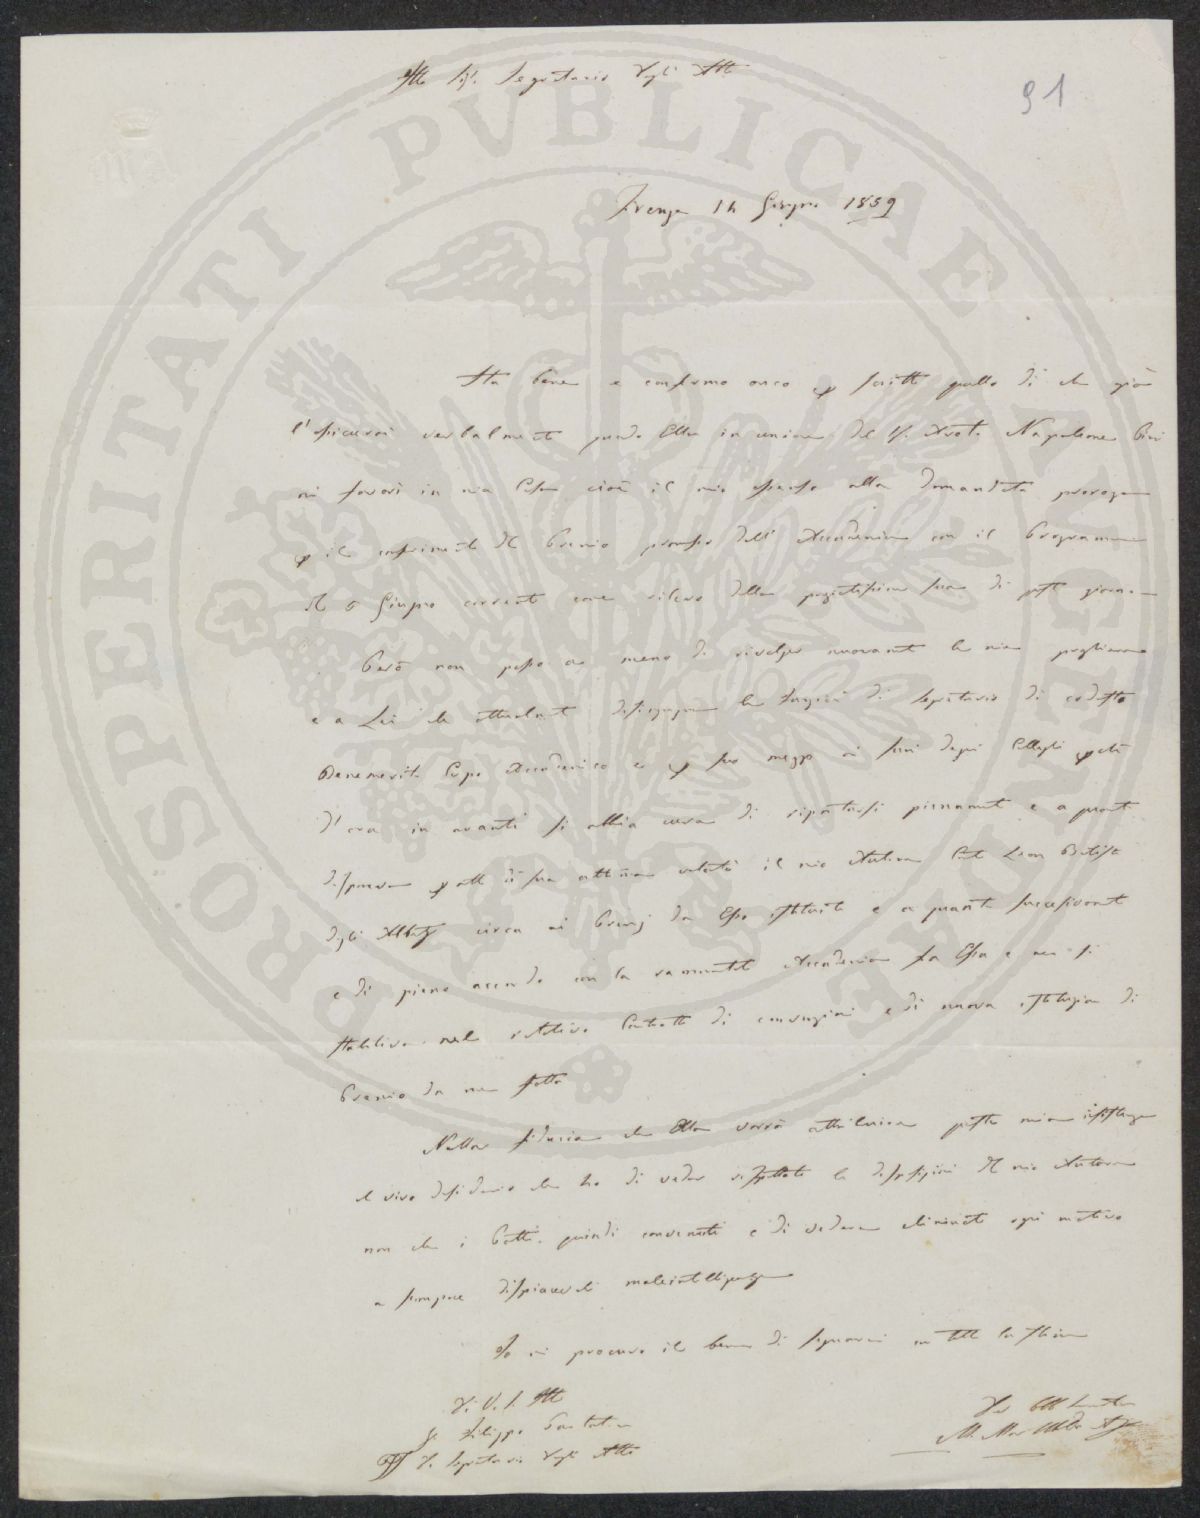 Sig. Segretario degli Atti
91
Firenze 14 Giugno 1859
Sta bene e confermo anco p scritto quello di che già
l'assicurai verbalmente quando Ella in unione del Sig. Napoleone Pini
mi favorì in mia Casa cioè il mio assenso alla domandata proroga
p il conferimento del Premio promesso dall' Accademia con il Programma
del 5 Giugno corrente come rilevo dalla pregiatissima sua di questo giorno
Però non posso a meno di rivolger nuovamente la mia preghiera
e a Lei che attualmente disimpegna le funzioni di Segretario di codesto
Benemerito Corpo Accademico e p suo mezzo ai suoi degni Colleghi
d'ora in avanti si abbia cura di riportarsi pienamente e a quanto
disponeva p atto di sua ultima volontà il mio Autore Leon Batista
degli Albizzi circa ai Premj da Esso istituiti e a quanto successivamente
e di pieno accordo con la rammentata Accademia fra Essa e me si
stabiliva nel relativo Contratto di convenzioni e di nuova istituzione di
Premio da me fatta
Nella fiducia che Ella vorrà attribuire questa mia insistenza
al vivo desiderio che ho di veder rispettate le disposizioni del mio Autore
non che i Patti quindi convenuti e di vedere eliminato ogni motivo
a sempre dispiacevoli malintelligenze
Io mi procuro il bene di segnarmi con tutta la stima
Di V. S.
Filippo
Segretario degli Atti